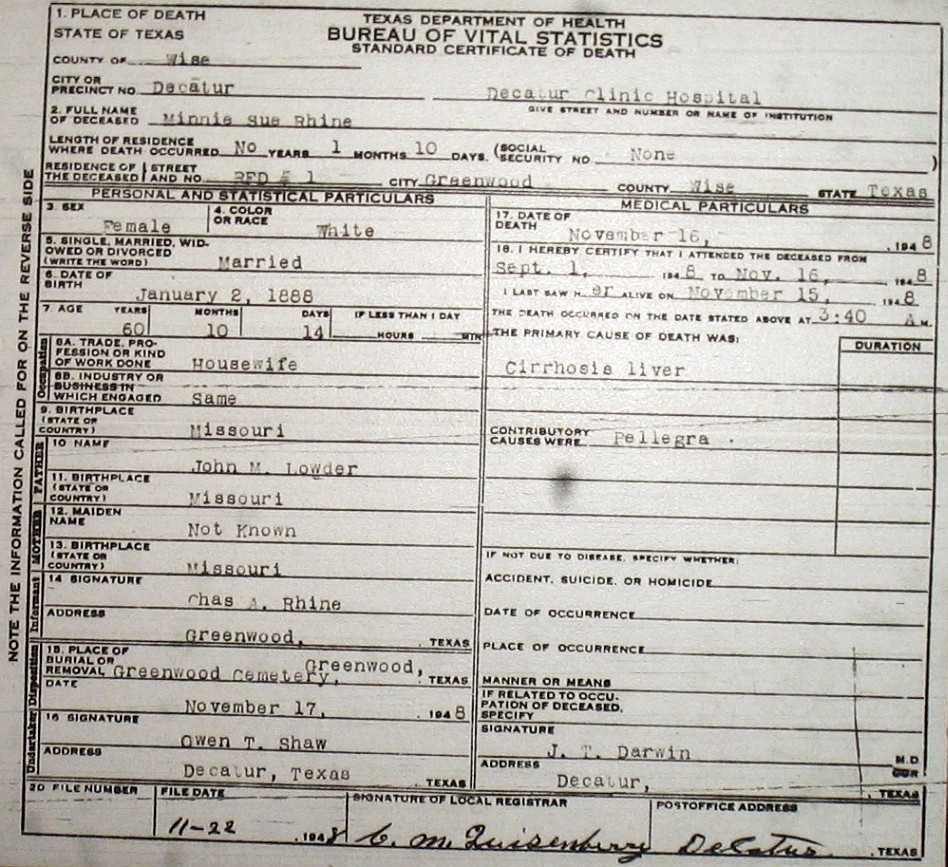 1. PLACE OF DEATH
STATE OF TEXAS
TEXAS DEPARTMENT OF HEALTH
BUREAU OF VITAL STATISTICS
STANDARD CERTIFICATE OF DEATH
COUNTY OF Wise
CITY OR PRECINCT NO. Decatur Decatur Clinic Hospital
GIVE STREET AND NUMBER OR NAME OF INSTITUTION
2. FULL NAME OF DECEASED Minnie Sue Rhine
LENGTH OF RESIDENCE WHERE DEATH OCCURRED No YEARS 1 MONTHS 10 DAYS. (SOCIAL SECURITY NO. None )
RESIDENCE OF THE DECEASED STREET AND NO. RFD # 1 CITY Greenwood COUNTY Wise STATE Texas
NOTE THE INFORMATION CALLED FOR ON THE REVERSE SIDE
PERSONAL AND STATISTICAL PARTICULARS
3. SEX Female 4. COLOR OR RACE White
5. SINGLE, MARRIED, WIDOWED OR DIVORCED (WRITE THE WORD) Married
6. DATE OF BIRTH January 2, 1888
7. AGE YEARS MONTHS DAYS IF LESS THAN 1 DAY
60 10 14 HOURS MIN
Occupation
8A. TRADE, PROFESSION OR KIND OF WORK DONE Housewife
8B. INDUSTRY OR BUSINESS IN WHICH ENGAGED Same
9. BIRTHPLACE (STATE OR COUNTRY) Missouri
FATHER
10 NAME John M. Lowder
11. BIRTHPLACE (STATE OR COUNTRY) Missouri
MOTHER
12. MAIDEN NAME Not Known
13. BIRTHPLACE (STATE OR COUNTRY) Missouri
Informant
14 SIGNATURE Chas A. Rhine
ADDRESS Greenwood, TEXAS
Undertaker Disposition
15. PLACE OF BURIAL OR REMOVAL Greenwood Cemetery, Greenwood, TEXAS
DATE November 17, , 1948
16 SIGNATURE Owen T. Shaw
ADDRESS Decatur, Texas , TEXAS
MEDICAL PARTICULARS
17. DATE OF DEATH November 16, , 1948
18. I HEREBY CERTIFY THAT I ATTENDED THE DECEASED FROM
Sept. 1, 1948 TO Nov. 16, 1948
I LAST SAW Her ALIVE ON November 15, 1948
THE DEATH OCCURRED ON THE DATE STATED ABOVE AT 3:40 A M.
THE PRIMARY CAUSE OF DEATH WAS: DURATION
Cirrhosis liver
CONTRIBUTORY CAUSES WERE Pellegra .
IF NOT DUE TO DISEASE, SPECIFY WHETHER:
ACCIDENT, SUICIDE, OR HOMICIDE
DATE OF OCCURRENCE
PLACE OF OCCURRENCE
MANNER OR MEANS
IF RELATED TO OCCUPATION OF DECEASED, SPECIFY
SIGNATURE J. T. Darwin M.D.
ADDRESS Decatur, , TEXAS
20 FILE NUMBER FILE DATE SIGNATURE OF LOCAL REGISTRAR POSTOFFICE ADDRESS
11-22 , 1948 C. M. Quisenberry Decatur , TEXAS